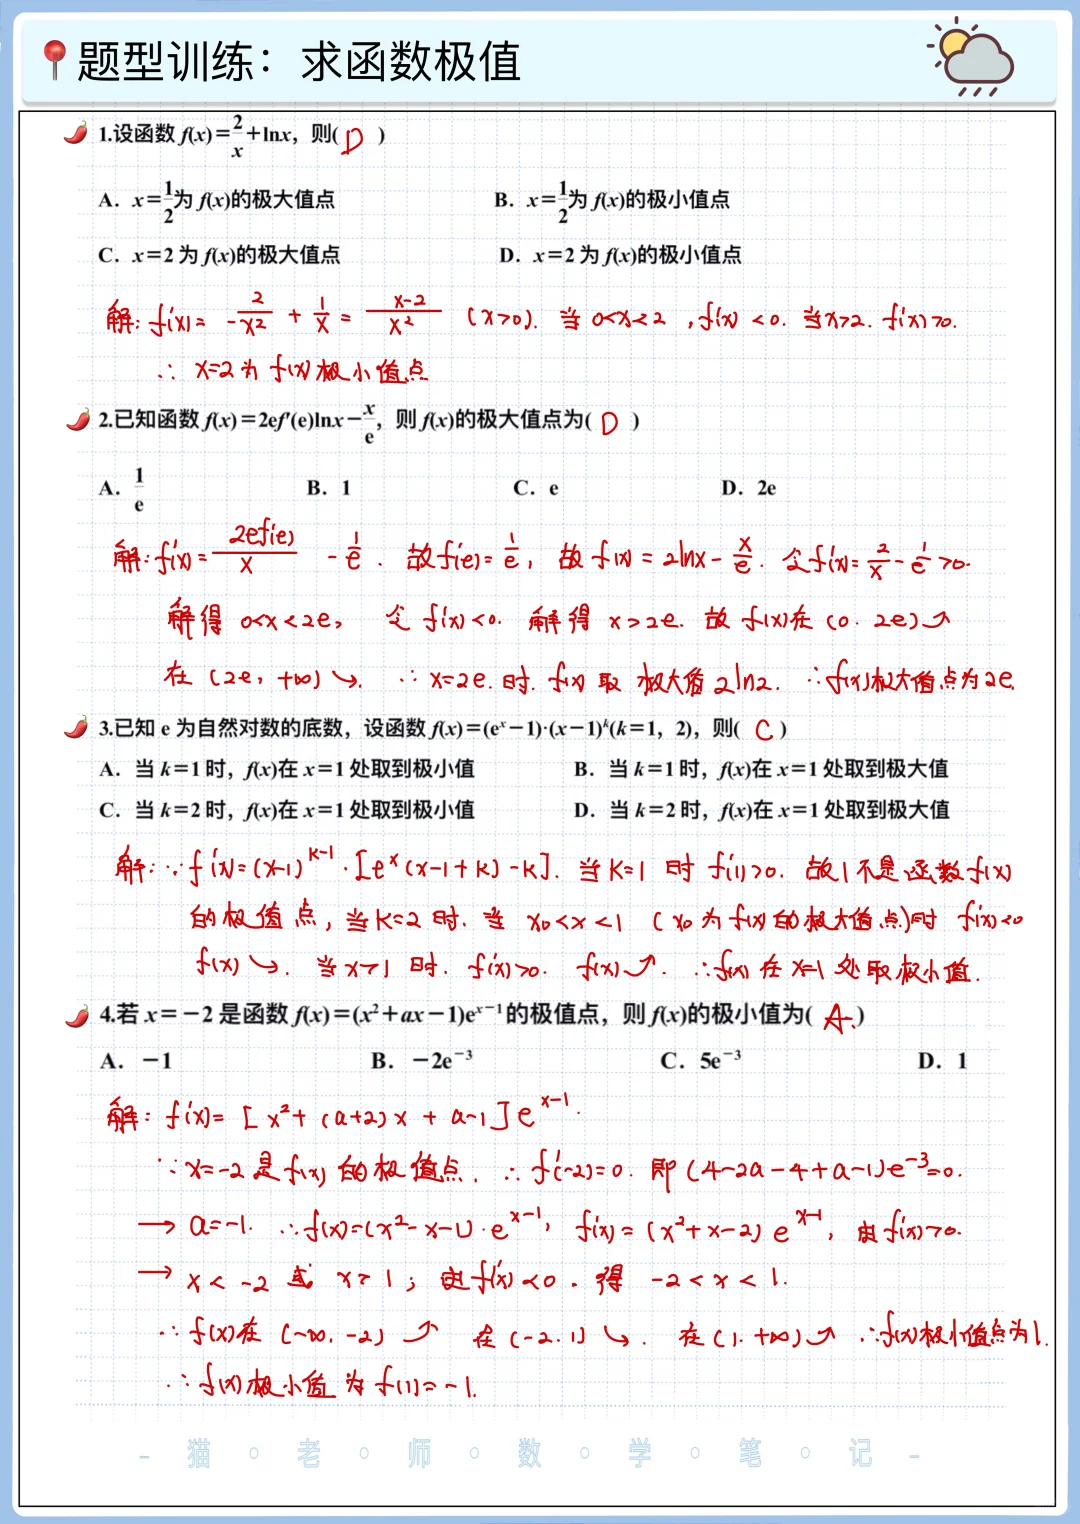 题型训练：求函数极值
1.设函数 f(x)=2/x+lnx，则( D )
A．x=1/2为 f(x)的极大值点 B．x=1/2为 f(x)的极小值点
C．x=2 为 f(x)的极大值点 D．x=2 为 f(x)的极小值点
解：f'(x)= -2/x² + 1/x = x-2/x² (x>0). 当 0<x<2 ,f'(x) <0. 当x>2. f'(x)>0.
∴ x=2为 f(x)极小值点
2.已知函数 f(x)=2ef′(e)lnx－x/e，则 f(x)的极大值点为( D )
A．1/e B．1 C．e D．2e
解：f'(x)= 2ef'(e)/x - 1/e . 故f'(e)= 1/e, 故 f(x) = 2lnx - x/e. 令f'(x)= 2/x - 1/e >0.
解得 0<x<2e, 令 f'(x)<0. 解得 x>2e. 故 f(x)在 (0. 2e)↗
在 (2e, +∞)↘. ∴ x=2e.时. f(x) 取 极大值2ln2. ∴f(x)极大值点为2e.
3.已知 e 为自然对数的底数，设函数 f(x)=(eˣ－1)·(x－1)ᵏ(k=1，2)，则( C )
A．当 k=1 时，f(x)在 x=1 处取到极小值 B．当 k=1 时，f(x)在 x=1 处取到极大值
C．当 k=2 时，f(x)在 x=1 处取到极小值 D．当 k=2 时，f(x)在 x=1 处取到极大值
解：∵ f'(x)=(x-1)ᵏ⁻¹·[eˣ(x-1+k)-k]. 当k=1 时 f'(1)>0. 故1不是函数f(x)
的极值点, 当k=2 时. 当 x₀<x<1 (x₀为f(x)的极大值点)时 f'(x)<0
f(x)↘. 当x>1 时. f'(x)>0. f(x)↗. ∴f(x) 在 x=1 处取极小值.
4.若 x=－2 是函数 f(x)=(x²+ax－1)eˣ⁻¹的极值点，则 f(x)的极小值为( A. )
A．－1 B．－2e⁻³ C．5e⁻³ D．1
解：f'(x)= [x²+(a+2)x + a-1]eˣ⁻¹.
∵x=-2是f(x) 的极值点. ∴ f'(-2)=0. 即 (4-2a-4+a-1)e⁻³=0.
→ a=-1. ∴f(x)=(x²-x-1)·eˣ⁻¹, f'(x)=(x²+x-2) eˣ⁻¹, 由f'(x)>0.
→ x<-2 或 x>1; 由f'(x)<0. 得 -2<x<1.
∴f(x)在 (-∞. -2)↗ 在(-2.1)↘. 在(1. +∞)↗ ∴f(x)极小值点为1.
∴f(x)极小值为f(1)=-1.
- 猫 · 老 · 师 · 数 · 学 · 笔 · 记 -